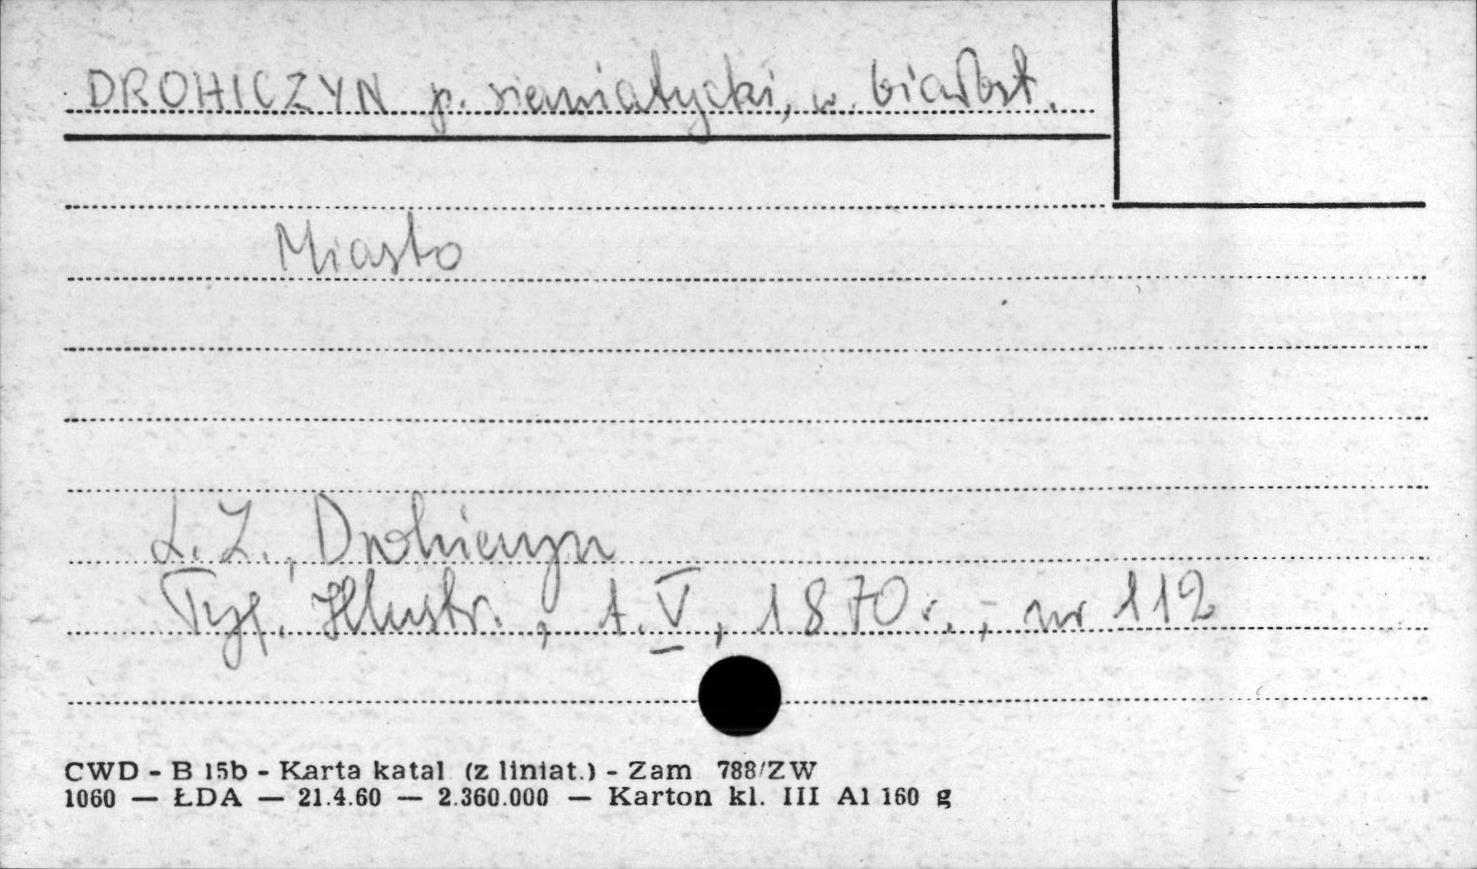 DROHICZYN p. siemiatycki, w. białost.
Miasto
L.Z., Drohiczyn
Tyg. Illustr., t. V, 1870 r., nr 112
CWD - B 15b - Karta katal (z liniat.) - Zam 788/ZW
1060 — ŁDA — 21.4.60 — 2.360.000 — Karton kl. III A1 160 g